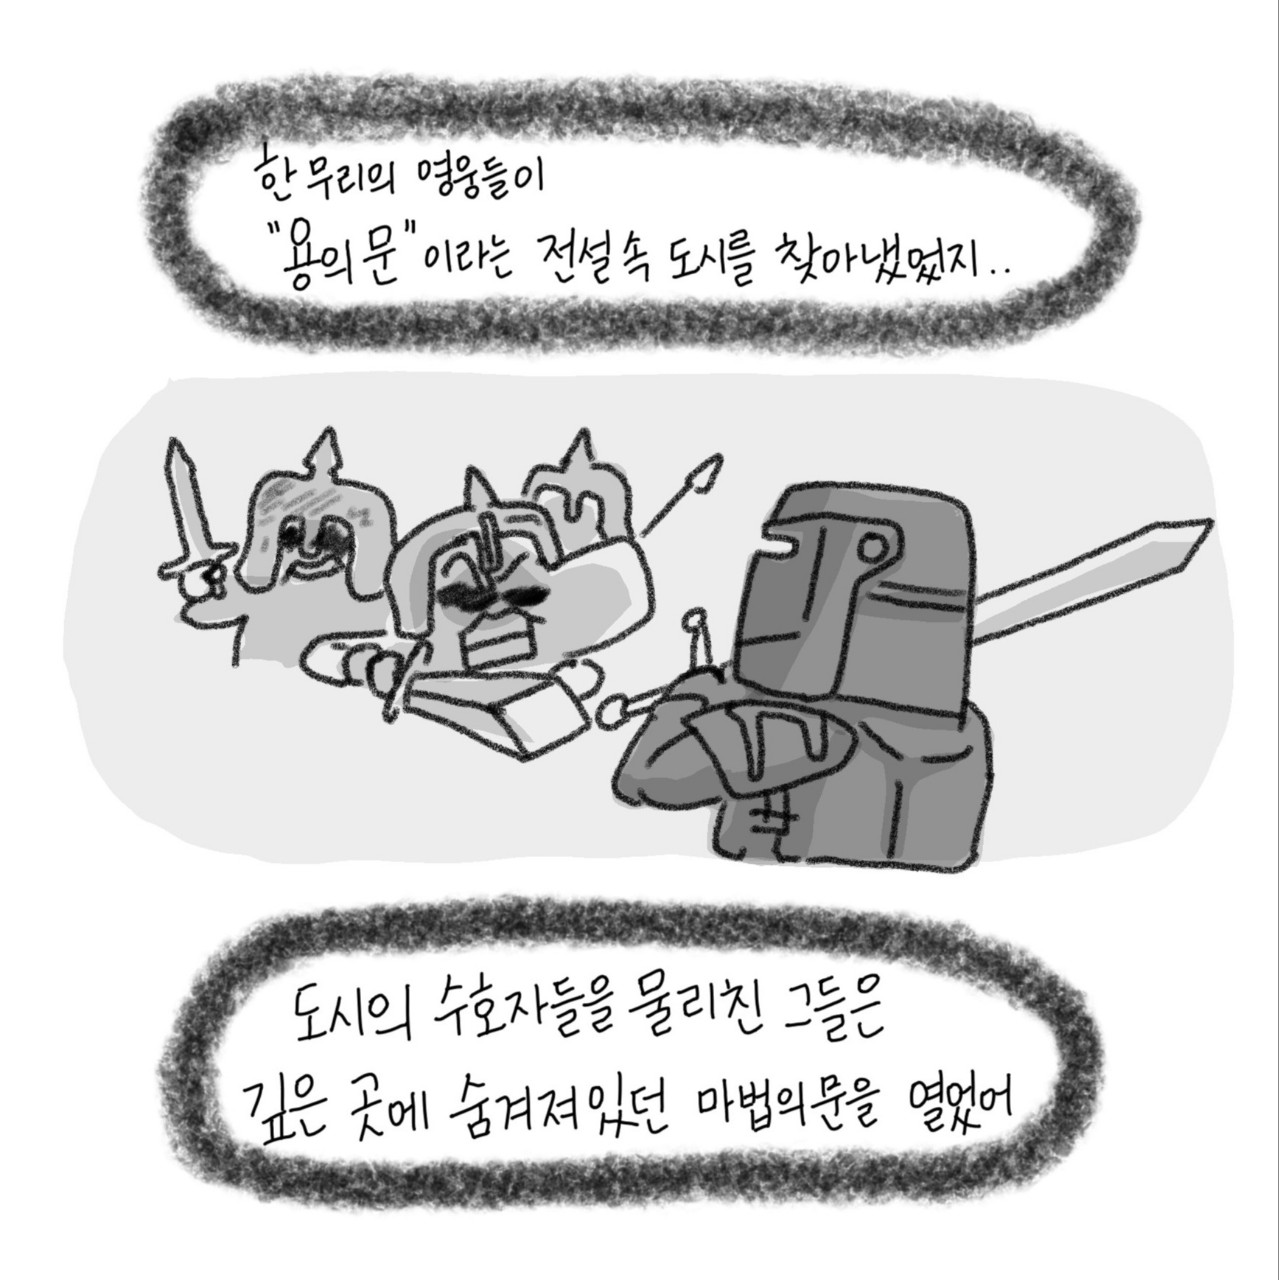 한 무리의 영웅들이
"용의 문"이라는 전설속 도시를 찾아냈었지..
도시의 수호자들을 물리친 그들은
깊은 곳에 숨겨져있던 마법의문을 열었어